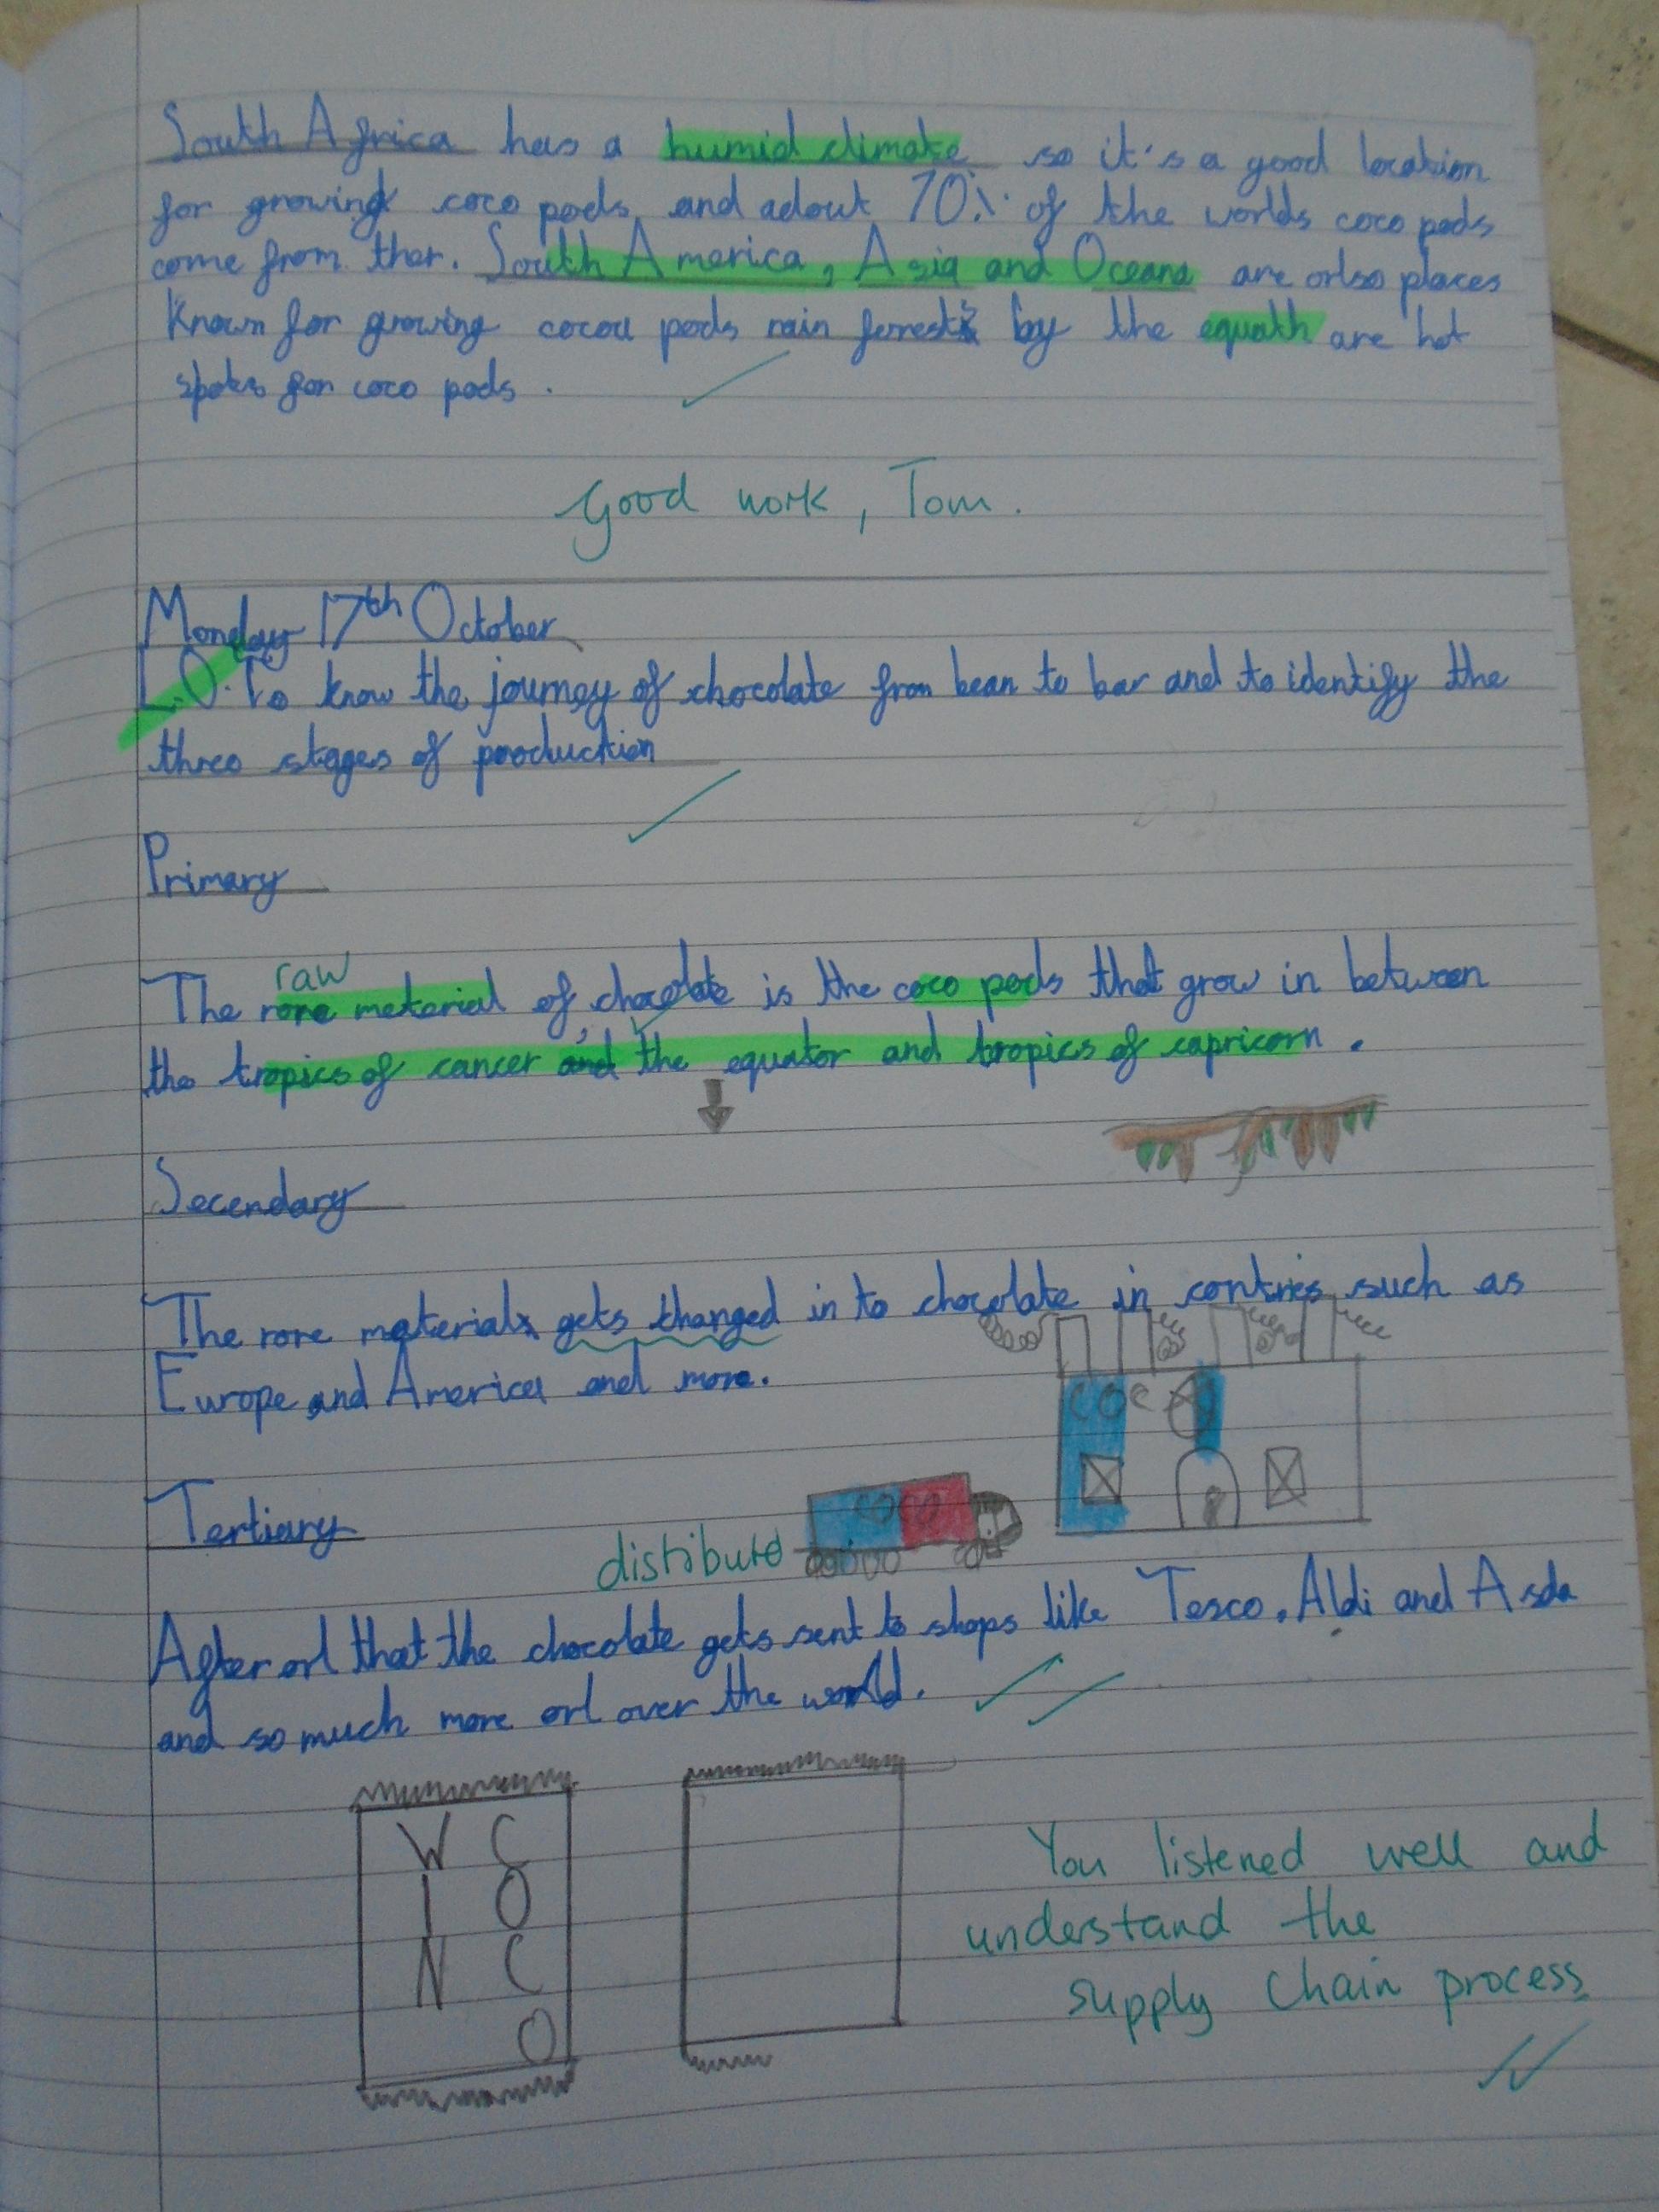 South Africa has a humid climate so it's a good location
for growing coco pods and adout 70% of the worlds coco pods
come from ther. South America, Asia and Oceana are orlso places
Known for growing cocoa pods rain forrest by the equath are hot
spots for coco pods.
Good work, Tom.
Monday 17th October
L.O. To know the journey of chocolate from bean to bar and to identify the
three stages of production
Primary
raw
The rore meterial of chocolate is the coco pods that grow in between
the tropics of cancer, and the equator and tropics of capricorn.
Secendary
The rore materials gets thanged in to chocolate in contries such as
Europe and America and more.
COCO
Tertiary
distribute
COCO
After orl that the chocolate gets sent to shops like Tesco, Aldi and Asda
and so much more orl over the world.
W C
I O
N C
O
You listened well and
understand the
supply chain process